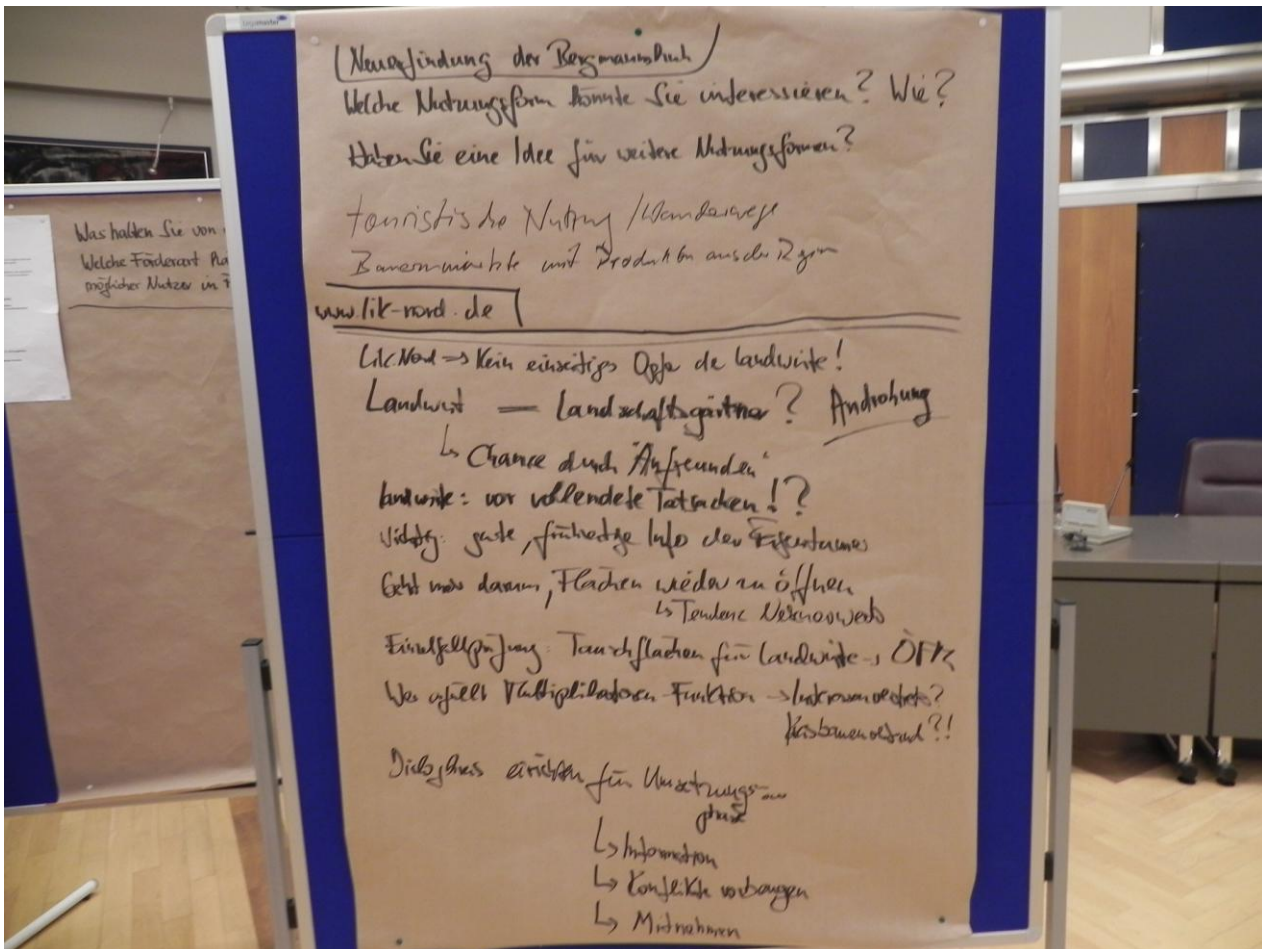 Legamaster
(Neuerfindung der Bergmannskuh)
Welche Nutzungsform könnte Sie interessieren? Wie?
Haben Sie eine Idee für weitere Nutzungsformen?
touristische Nutzung / Wanderwege
Bauernmärkte mit Produkten aus der Region
www.lik-nord.de
Lik.Nord => Kein einseitiges Opfer der Landwirte!
Landwirt — Landschaftsgärtner? Androhung
↳ Chance durch "Anfreunden"
Landwirte: vor vollendete Tatsachen!?
Wichtig: gute, frühzeitige Info der Eigentümer
Geht mehr darum, Flächen wieder zu öffnen
↳ Tendenz
Einzelfallprüfung: Tauschflächen für Landwirte → ÖFK
Wer erfüllt Multiplikatoren Funktion → Interessenvertreter?
Kreisbauernverband?!
Dialogkreis einrichten für Umsetzungs-
phase
↳ Information
↳ Konflikte vorbeugen
↳ Mitnehmen
Was halten Sie von
Welche Förderart
möglicher Nutzer in